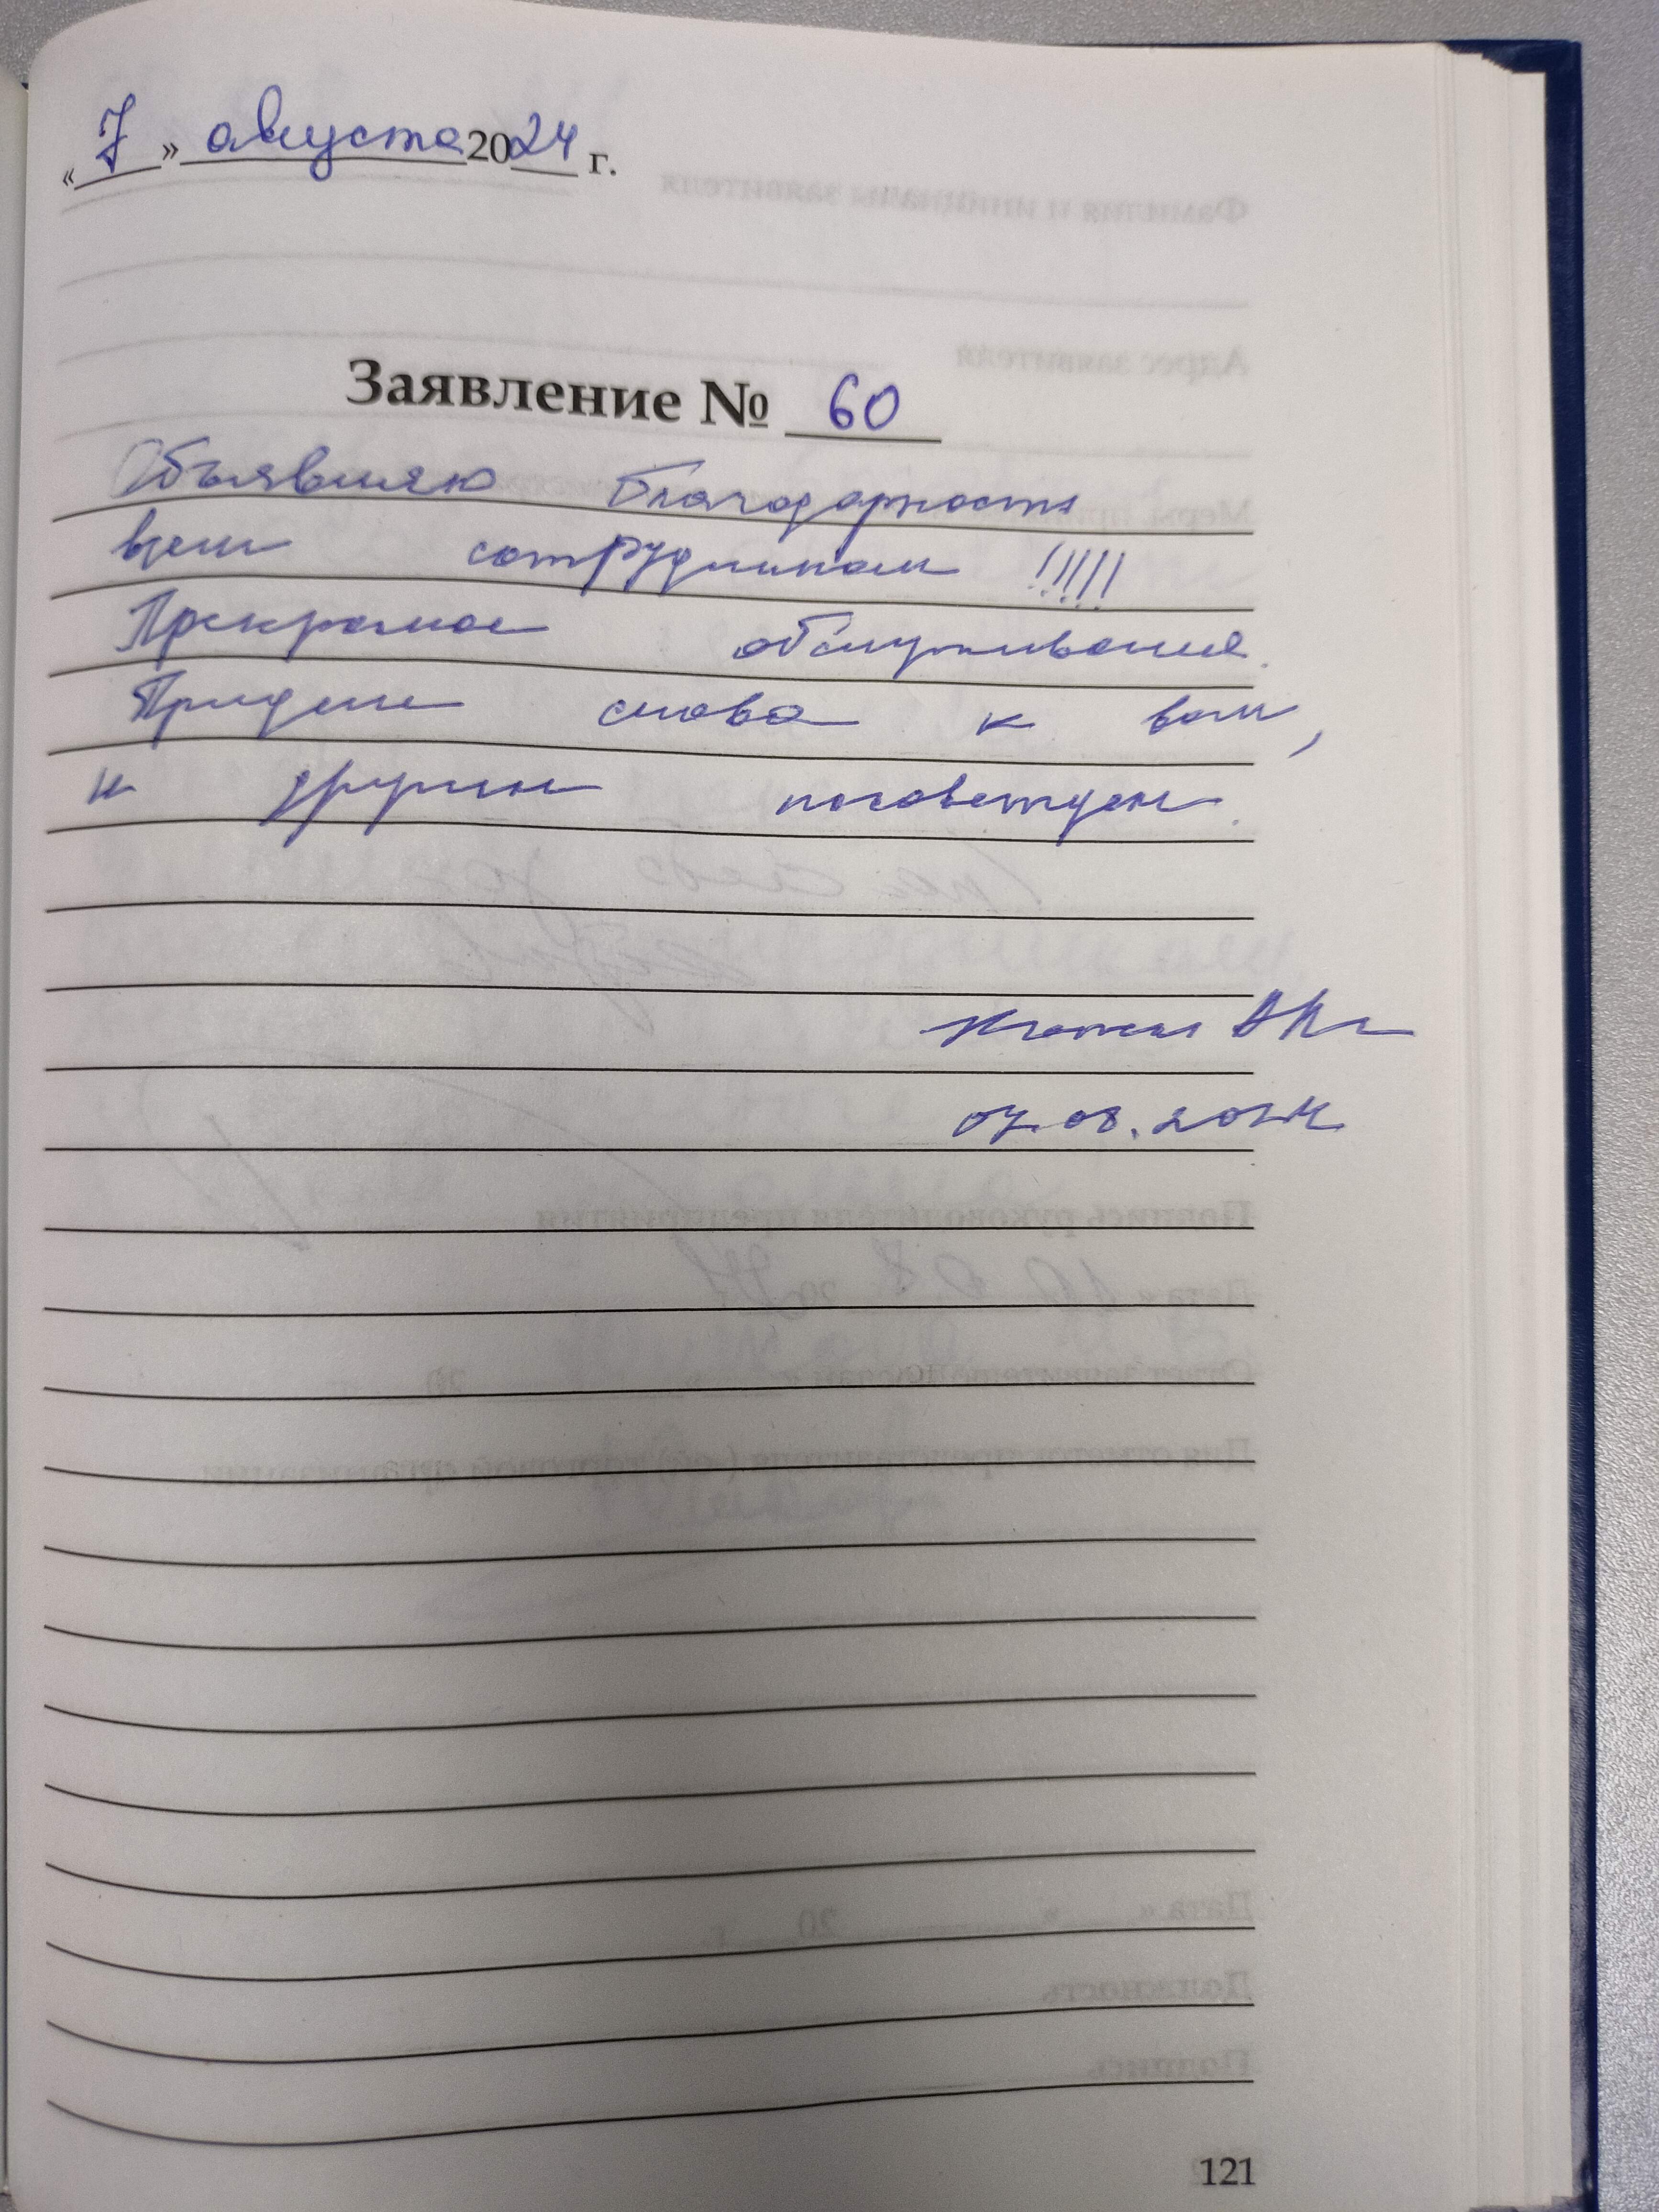 « 7 » августа 2024 г.
Заявление № 60
Объявляю благодарность
всем сотрудникам !!!!!
Прекрасное обслуживание.
Придем снова к вам,
и другим посоветуем.
07.08.2024
121